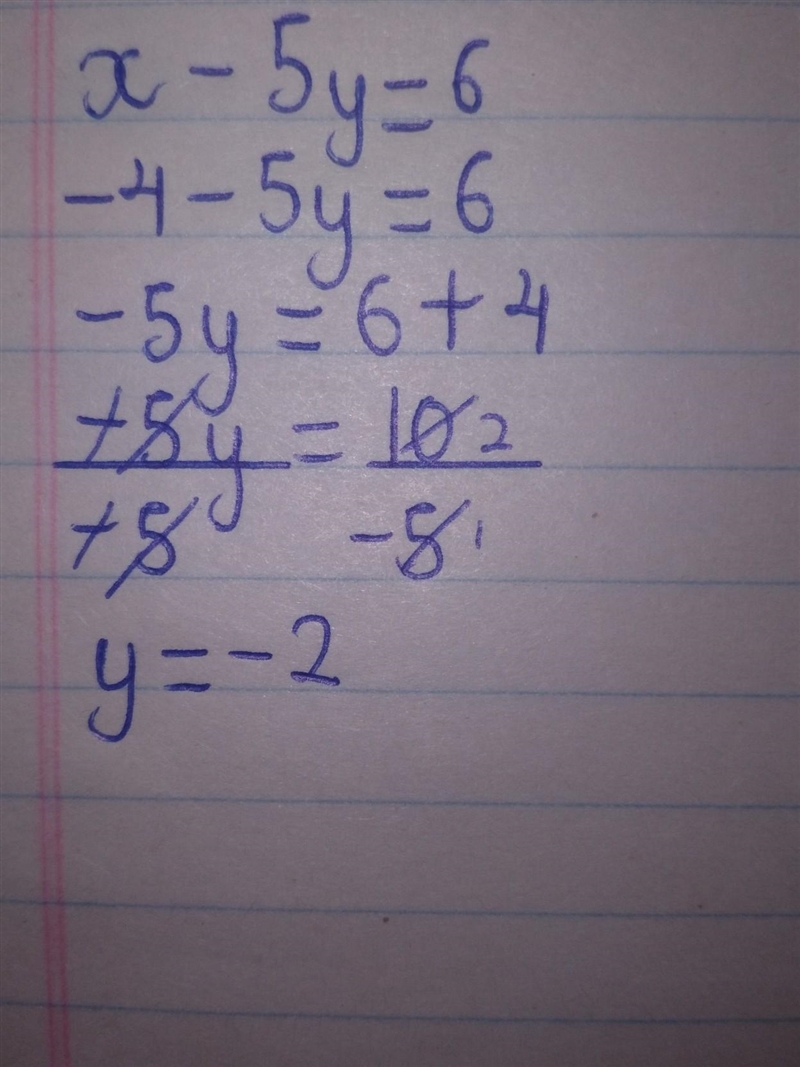 x - 5y = 6
-4 - 5y = 6
-5y = 6 + 4
-5y = 10 2
-5 -5 1
y = -2